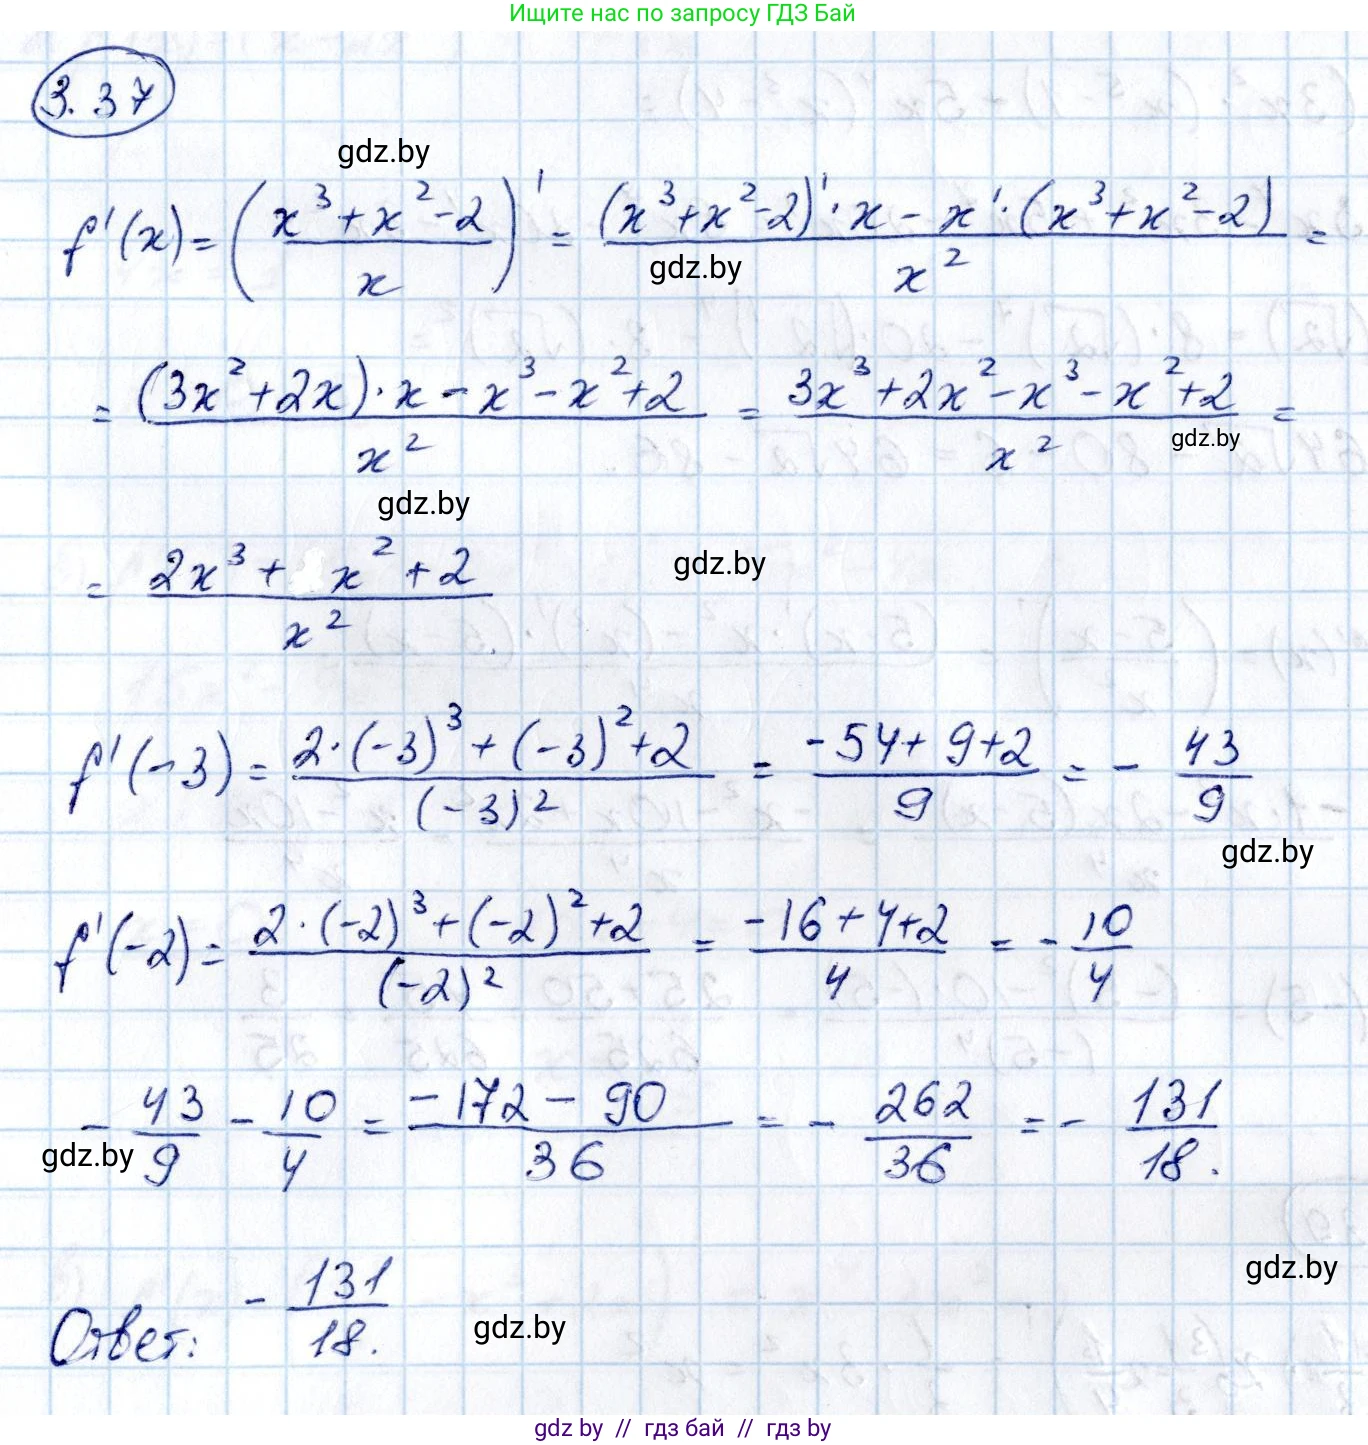 Ищите нас по запросу ГДЗ Бай
3.37
gdz.by
f'(x) = ((x³+x²-2)/x)' = ((x³+x²-2)'·x - x'·(x³+x²-2))/x² =
gdz.by
= ((3x²+2x)·x - x³-x²+2)/x² = (3x³+2x²-x³-x²+2)/x² =
gdz.by
gdz.by
= (2x³+x²+2)/x²
gdz.by
f'(-3) = (2·(-3)³+(-3)²+2)/(-3)² = (-54+9+2)/9 = - 43/9
gdz.by
f'(-2) = (2·(-2)³+(-2)²+2)/(-2)² = (-16+4+2)/4 = - 10/4
- 43/9 - 10/4 = (-172 - 90)/36 = - 262/36 = - 131/18.
gdz.by
gdz.by
Ответ: - 131/18.
gdz.by
gdz.by // гдз бай // gdz.by